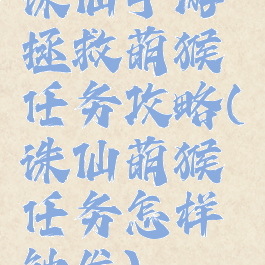 诛仙手游
拯救萌猴
任务攻略(
诛仙萌猴
任务怎样
触发)